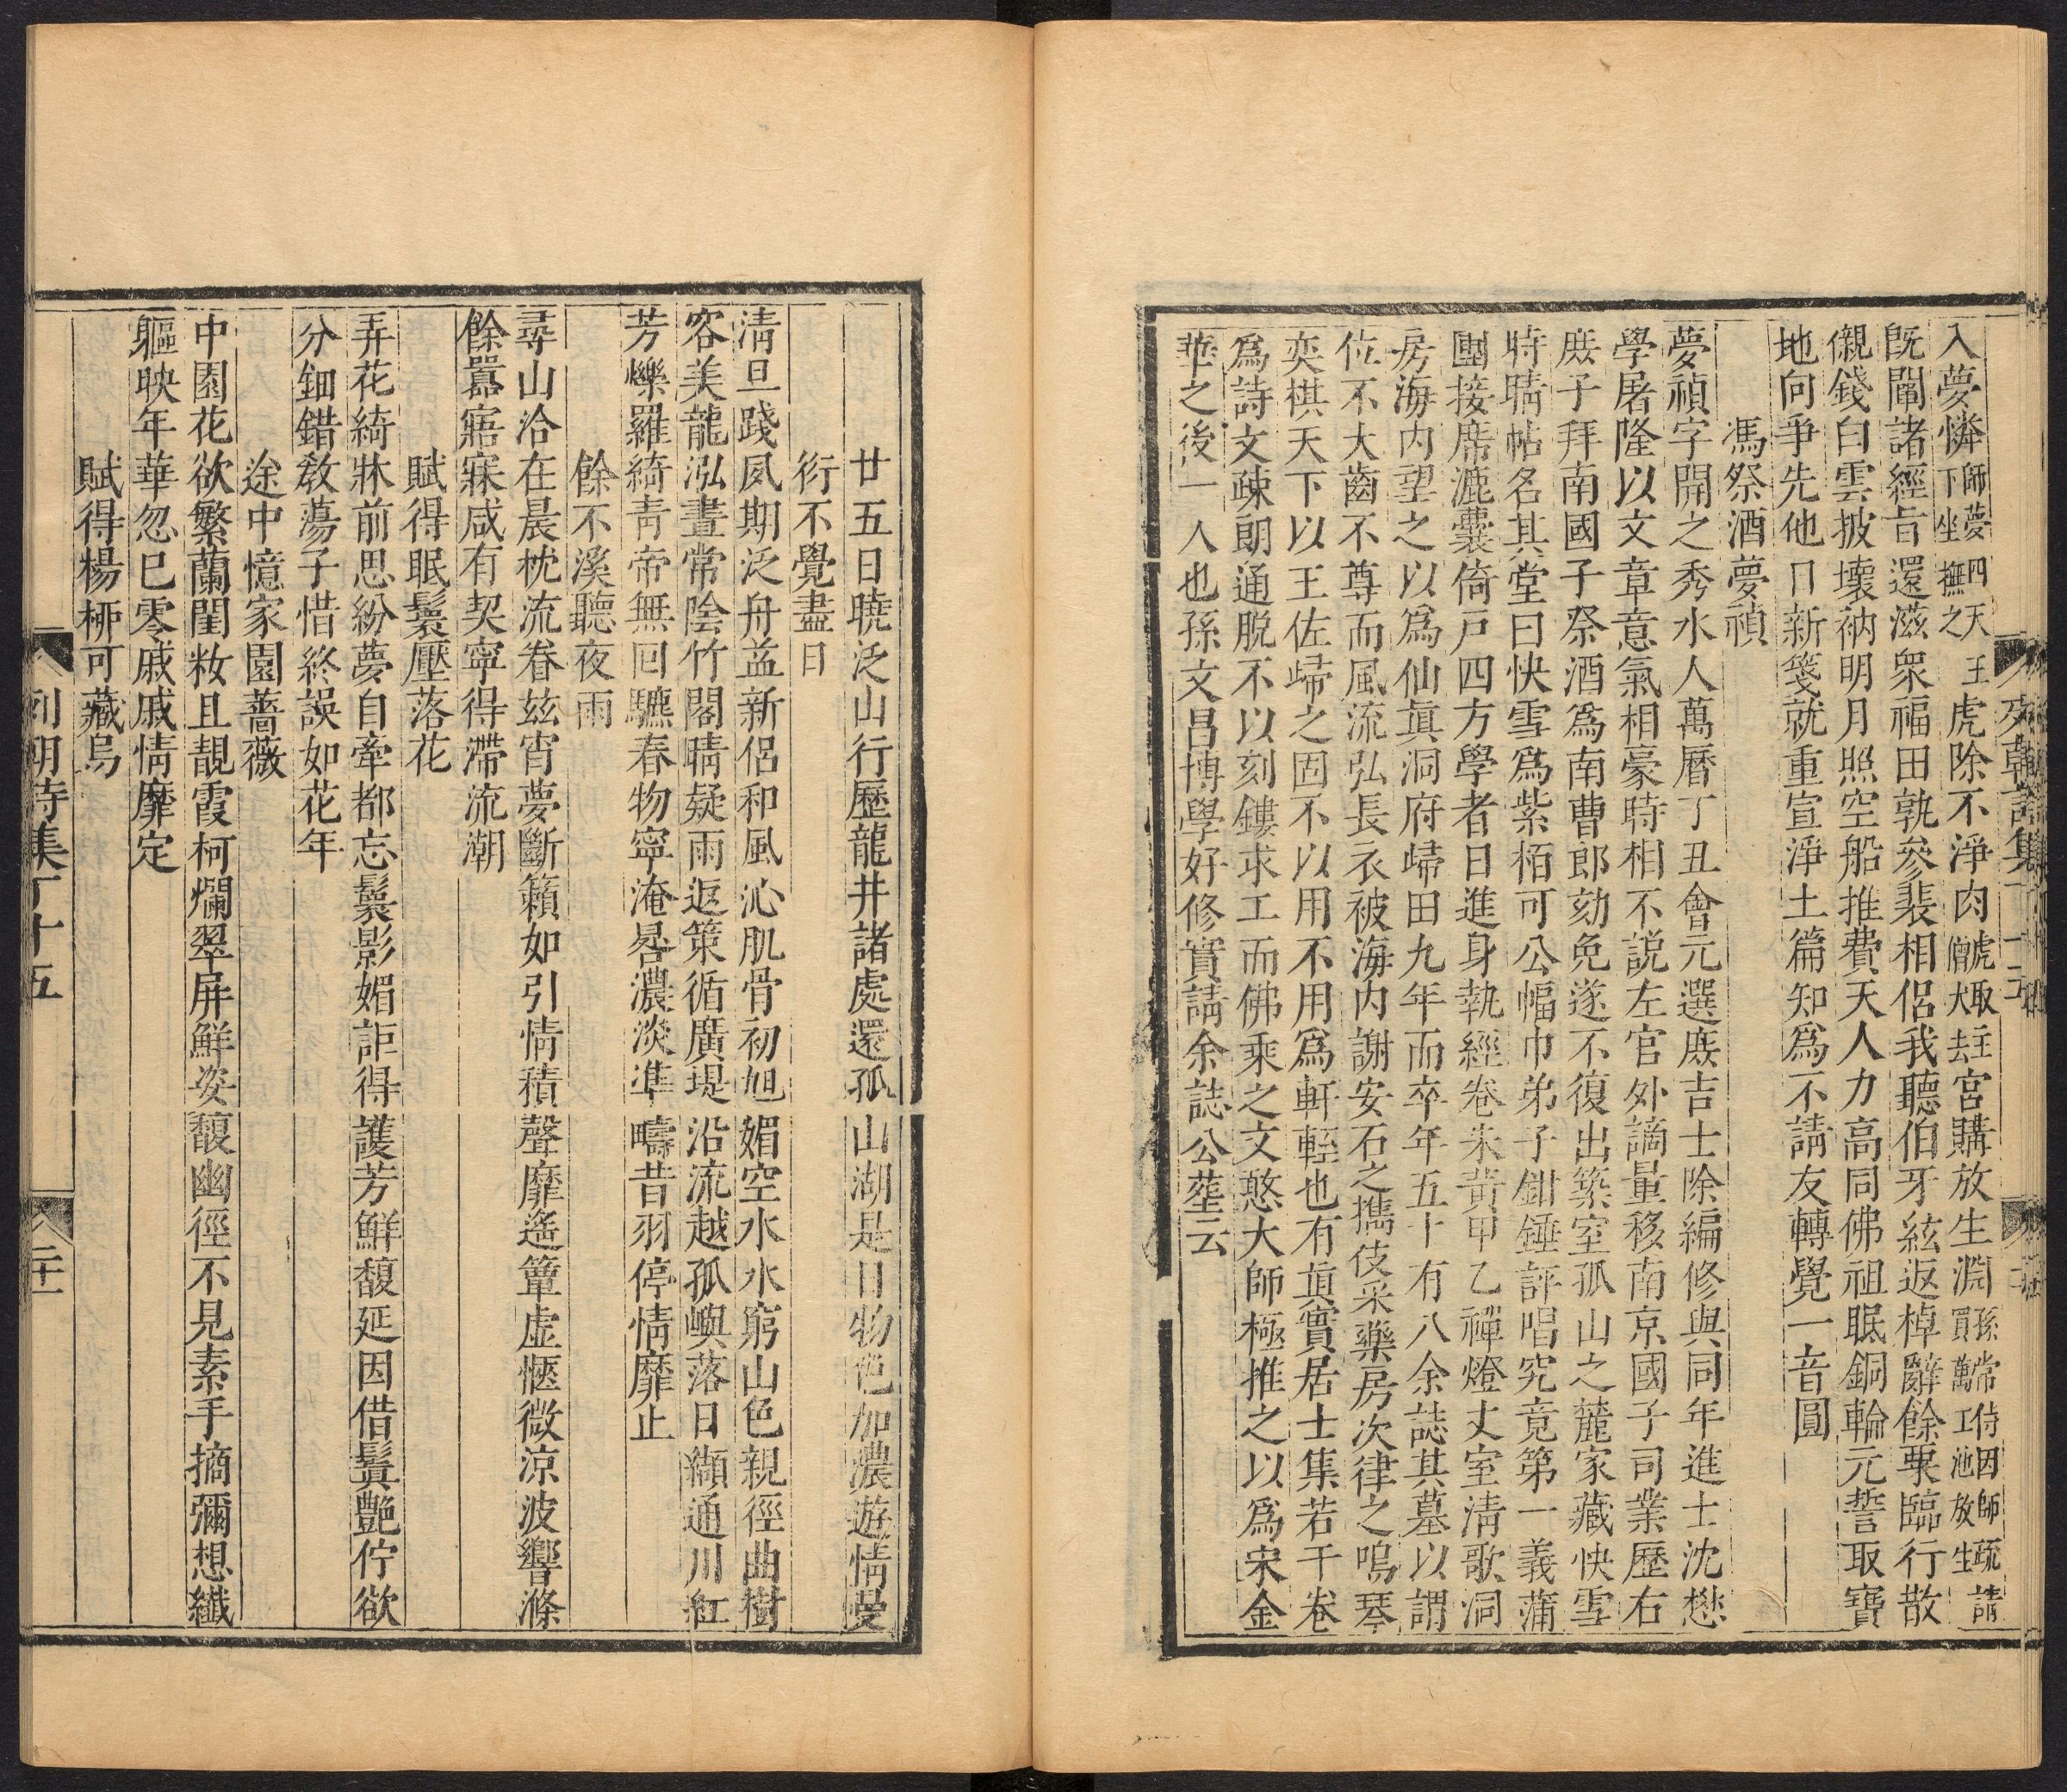 入夢憐師夢四天王下坐撫之虎除不淨肉虎取主僧犬去宮購放生淵孫常侍因師疏請買萬工池放生
既闡諸經旨還滋衆福田孰參裴相侶我聽伯牙絃返棹辭餘栗臨行散
儭錢白雲披壞衲明月照空船推費天人力高同佛祖眠銅輪元誓取寶
地向爭先他日新箋就重宣淨土篇知爲不請友轉覺一音圓
馮祭酒夢禎
夢禎字開之秀水人萬曆丁丑會元選庶吉士除編修與同年進士沈懋
學屠隆以文章意氣相豪時相不説左官外謫量移南京國子司業歷右
庶子拜南國子祭酒爲南曹郎劾免遂不復出築室孤山之麓家藏快雪
時晴帖名其堂曰快雪爲紫栢可公幅巾弟子鉗錘評唱究竟第一義蒲
團接席漉囊倚戸四方學者日進身執經卷朱黄甲乙禪燈丈室清歌洞
房海内望之以爲仙眞洞府歸田九年而卒年五十有八余誌其墓以謂
位不大齒不尊而風流弘長衣被海内謝安石之攜伎采藥房次律之鳴琴
奕棋天下以王佐歸之固不以用不用爲軒輊也有眞實居士集若干卷
爲詩文疎朗通脱不以刻鏤求工而佛乘之文憨大師極推之以爲宋金
華之後一人也孫文昌博學好修實請余誌公墓云
廿五日曉泛山行歷龍井諸處還孤山湖是日物色加濃遊情曼
衍不覺盡日
淸旦踐夙期泛舟益新侶和風沁肌骨初旭媚空水水窮山色親徑曲樹
容美龍泓晝常陰竹閣晴疑雨返策循廣堤沿流越孤嶼落日纈通川紅
芳爍羅綺靑帝無回驪春物寧淹晷濃淡準疇昔羽停情靡止
餘不溪聽夜雨
尋山洽在晨枕流眷玆宵夢斷籟如引情積聲靡遙簟虛愜微凉波響滌
餘囂寤寐咸有契寧得滯流潮
賦得眠鬟壓落花
弄花綺牀前思紛夢自牽都忘鬟影媚詎得護芳鮮馥延因借鬒艷佇欲
分鈿錯敎蕩子惜終誤如花年
途中憶家園薔薇
中園花欲繁蘭閨妝且靚霞柯爛翠屏鮮姿馥幽徑不見素手摘彌想纖
軀映年華忽已零戚戚情靡定
賦得楊栁可藏烏
列朝詩集丁十五